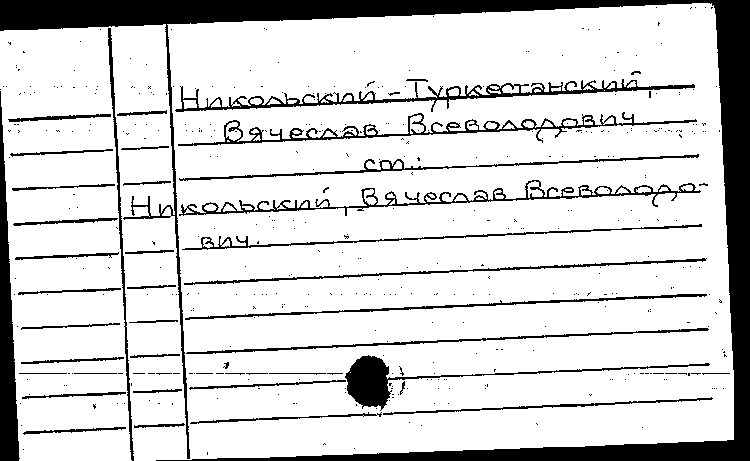 Никольский - Туркестанский,
Вячеслав Всеволодович
см.:
Никольский, Вячеслав Всеволодо-
вич.